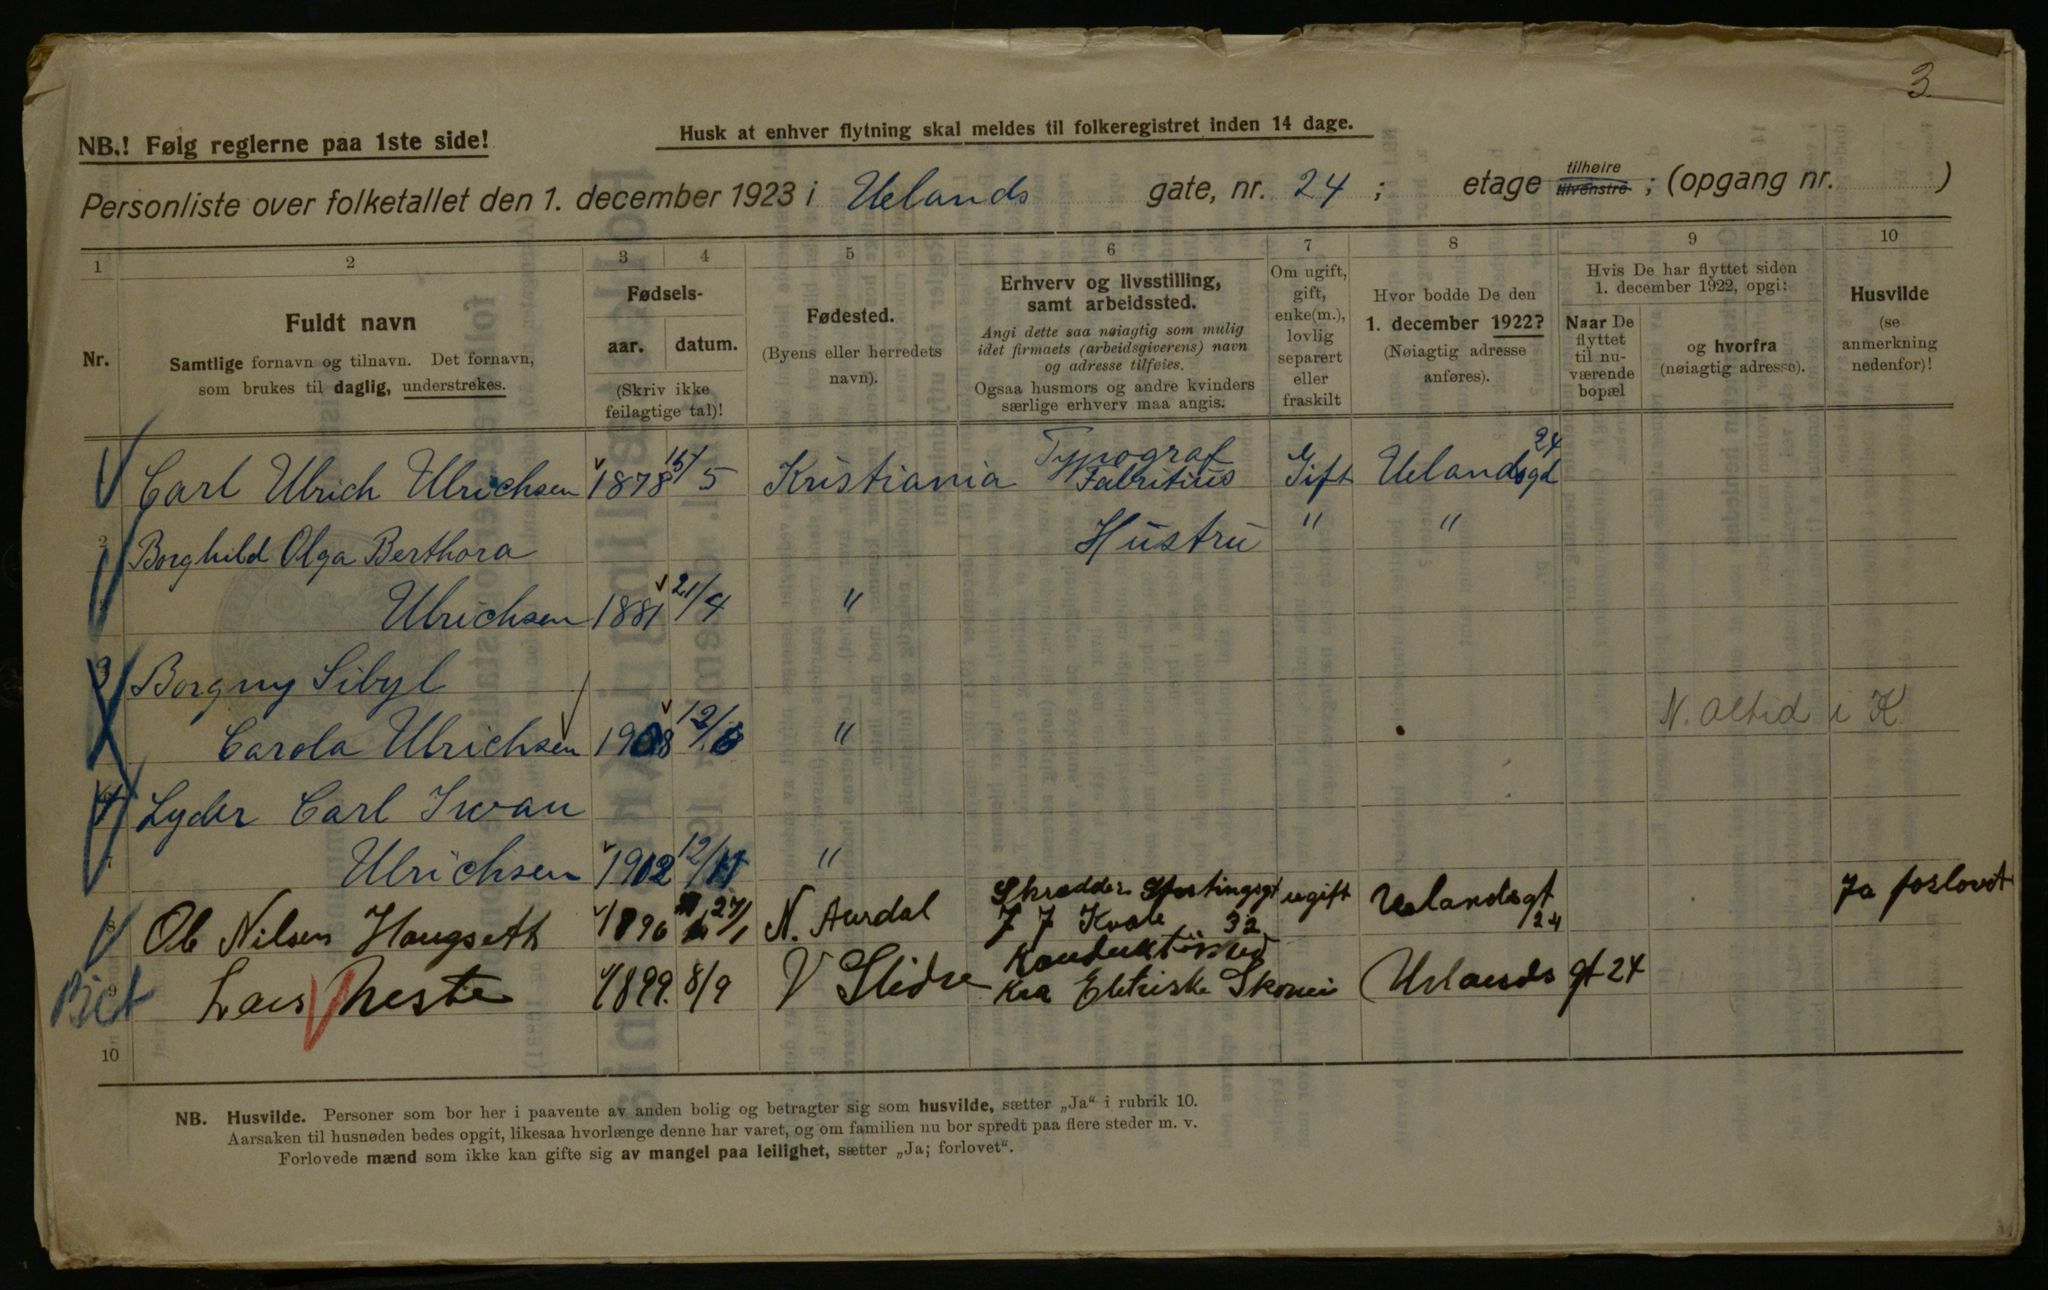 3
NB.! Følg reglerne paa 1ste side!
Husk at enhver flytning skal meldes til folkeregistret inden 14 dage.
Personliste over folketallet den 1. december 1923 i Uelands gate, nr. 24 ; etage tilhøire tilvenstre ; (opgang nr. )
1 2 3 4 5 6 7 8 9 10
Nr.
Fuldt navn
Samtlige fornavn og tilnavn. Det fornavn,
som brukes til daglig, understrekes.
Fødsels-
aar. datum.
(Skriv ikke
feilagtige tal)!
Fødested.
(Byens eller herredets
navn).
Erhverv og livsstilling,
samt arbeidssted.
Angi dette saa nøiagtig som mulig
idet firmaets (arbeidsgiverens) navn
og adresse tilføies.
Ogsaa husmors og andre kvinders
særlige erhverv maa angis.
Om ugift,
gift,
enke(m.),
lovlig
separert
eller
fraskilt
Hvor bodde De den
1. december 1922?
(Nøiagtig adresse
anføres).
Hvis De har flyttet siden
1. december 1922, opgi:
Naar De
flyttet
til nu-
værende
bopæl
og hvorfra
(nøiagtig adresse).
Husvilde
(se
anmerkning
nedenfor)!
Carl Ulrich Ulrichsen 1878 15/5 Kristiania Typograf Fabritius Gift Uelandsgd 24
2 Borghild Olga Berthora Hustru " "
Ulrichsen 1881 21/4 "
3 Borgny Sibyl
Carola Ulrichsen 1908 12/6 " N. Altid i K.
4 Lyder Carl Iwan
Ulrichsen 1902 12/11 "
Ole Nilsen Haugseth 1896 27/1 N. Aurdal Skrædder Stortingsgt J J Kvale 32 ugift Uelandsgt 24 Ja forlovet
Bict Lars Neste 1899. 8/9 V Slidre Konduktør ved Kra Eletriske Uelands gt 24
10
NB. Husvilde. Personer som bor her i paavente av anden bolig og betragter sig som husvilde, sætter „Ja“ i rubrik 10.
Aarsaken til husnøden bedes opgit, likesaa hvorlænge denne har varet, og om familien nu bor spredt paa flere steder m. v.
Forlovede mænd som ikke kan gifte sig av mangel paa leilighet, sætter „Ja; forlovet“.